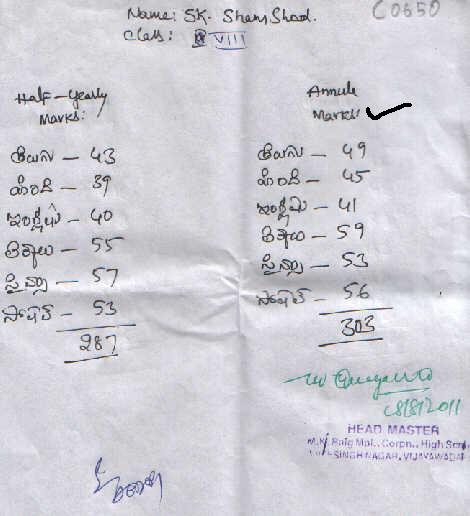 C0650
Name: SK. Sham Shad.
Class: VIII
Half-Yearly
Marks:
తెలుగు - 43
హిందీ - 39
ఇంగ్లీషు - 40
లెక్కలు - 55
సైన్సు - 57
సోషల్ - 53
287
Annule
Marks:
తెలుగు - 49
హిందీ - 45
ఇంగ్లీషు - 41
లెక్కలు - 59
సైన్సు - 53
సోషల్ - 56
303
HEAD MASTER
M.K. Baig Mpl., Corpn., High School
SINGH NAGAR, VIJAYAWADA